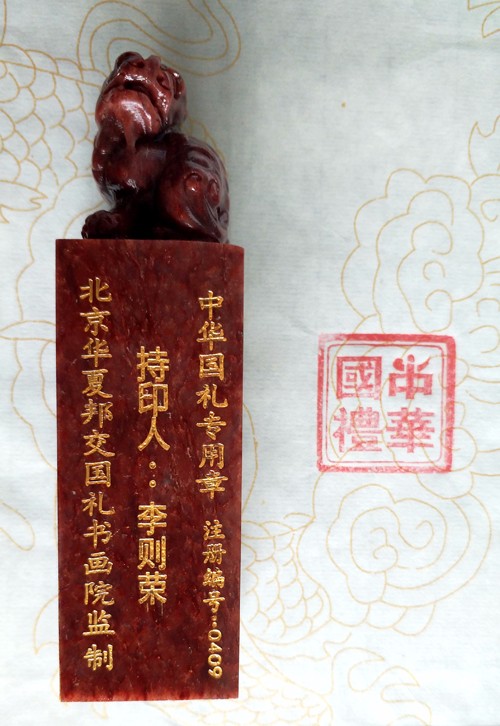 中华国礼专用章 注册编号:0409
持印人:李则荣
北京华夏邦交国礼书画院监制
中華
國禮